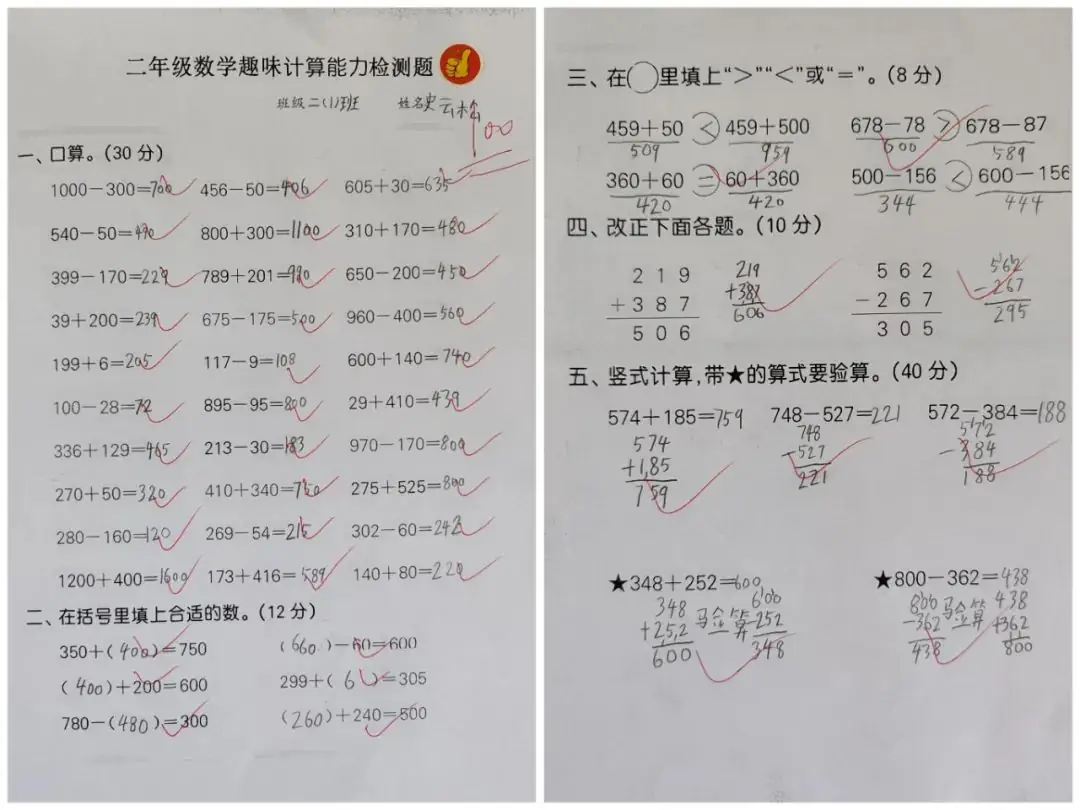 二年级数学趣味计算能力检测题
班级二(1)班 姓名史云木
100
一、口算。(30分)
1000-300=700 456-50=406 605+30=635
540-50=490 800+300=1100 310+170=480
399-170=229 789+201=990 650-200=450
39+200=239 675-175=500 960-400=560
199+6=205 117-9=108 600+140=740
100-28=72 895-95=800 29+410=439
336+129=465 213-30=183 970-170=800
270+50=320 410+340=750 275+525=800
280-160=120 269-54=215 302-60=242
1200+400=1600 173+416=589 140+80=220
二、在括号里填上合适的数。(12分)
350+(400)=750 (660)-60=600
(400)+200=600 299+(6)=305
780-(480)=300 (260)+240=500
三、在○里填上“>”“<”或“=”。(8分)
459+50<459+500 678-78>678-87
509 959 600 589
360+60=60+360 500-156<600-156
420 420 344 444
四、改正下面各题。(10分)
219 219 562 562
+387 +387 -267 -267
506 606 305 295
五、竖式计算,带★的算式要验算。(40分)
574+185=759 748-527=221 572-384=188
574 748 572
+185 -527 -384
759 221 188
★348+252=600 ★800-362=438
348 验算 600 800 验算 438
+252 -252 -362 +362
600 348 438 800